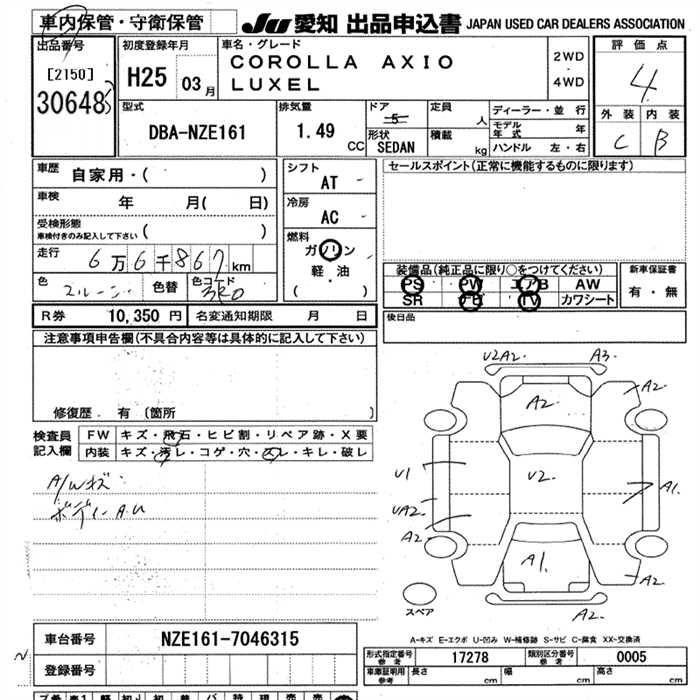 車内保管・守衛保管
JU 愛知 出品申込書 JAPAN USED CAR DEALERS ASSOCIATION
出品番号
[2150]
30648
初度登録年月
H25 03月
車名・グレード
COROLLA AXIO
LUXEL
2WD
・
4WD
評価点
4
外装 内装
C B
型式
DBA-NZE161
排気量
1.49 CC
ドア
5
形状
SEDAN
定員
人
積載
kg
ディーラー・並行
モデル年式 年
ハンドル 左・右
車歴
自家用・( )
車検
年 月( 日)
受検形態
車検付きのみ記入して下さい ( )
走行
6万6千867km
色
色替
色コード
シフト
AT
冷房
AC
燃料
ガソリン
軽・油
( )
セールスポイント(正常に機能するものに限ります)
装備品(純正品に限り○をつけてください)
PS PW エアB AW
SR ナビ TV カワシート
新車保証書
有・無
後日品
R券 10,350円 名変通知期限 月 日
注意事項申告欄(不具合内容等は具体的に記入して下さい)
修復歴・有(箇所 )
検査員記入欄
FW キズ・飛石・ヒビ割・リペア跡・X要
内装 キズ・汚レ・コゲ・穴・スレ・キレ・破レ
A/Wキズ
ボディー A.U
U2A2. A3.
A2
A2.
U1
U2.
A1.
UA2.
A2
A1.
A2
A2.
スペア
A-キズ E-エクボ U-凹み W-補修跡 S-サビ C-腐食 XX-交換済
車台番号 NZE161-7046315
登録番号
型式指定番号 参考 17278 類別区分番号 参考 0005
車庫証明用 参考 長さ cm 幅 cm 高さ cm